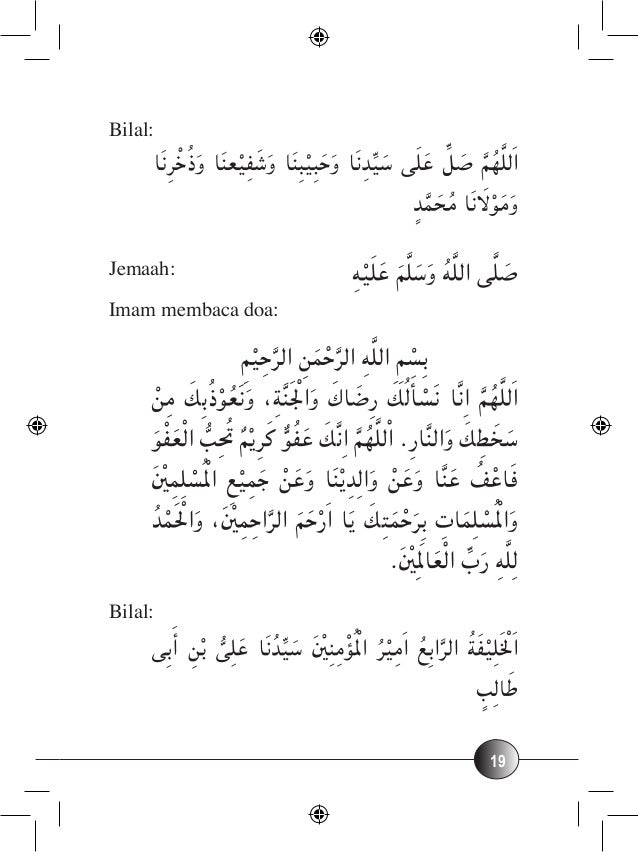 Bilal:
اَللَّهُمَّ صَلِّ عَلَى سَيِّدِنَا وَحَبِيْبِنَا وَشَفِيْعِنَا وَذُخْرِنَا
وَمَوْلَانَا مُحَمَّدٍ
Jemaah:
صَلَّى اللَّهُ وَسَلَّمَ عَلَيْهِ
Imam membaca doa:
بِسْمِ اللَّهِ الرَّحْمَنِ الرَّحِيْمِ
اَللَّهُمَّ اِنَّا نَسْأَلُكَ رِضَاكَ وَالْجَنَّةِ، وَنَعُوْذُبِكَ مِنْ
سَخَطِكَ وَالنَّارِ. اَللَّهُمَّ اِنَّكَ عَفُوٌّ كَرِيْمٌ تُحِبُّ الْعَفْوَ
فَاعْفُ عَنَّا وَعَنْ وَالِدِيْنَا وَعَنْ جَمِيْعِ الْمُسْلِمِيْنَ
وَالْمُسْلِمَاتِ بِرَحْمَتِكَ يَا اَرْحَمَ الرَّاحِمِيْنَ، وَالْحَمْدُ
لِلَّهِ رَبِّ الْعَالَمِيْنَ.
Bilal:
اَلْخَلِيْفَةُ الرَّابِعُ اَمِيْرُ الْمُؤْمِنِيْنَ سَيِّدُنَا عَلِىُّ بْنِ أَبِى
طَالِبٍ
19